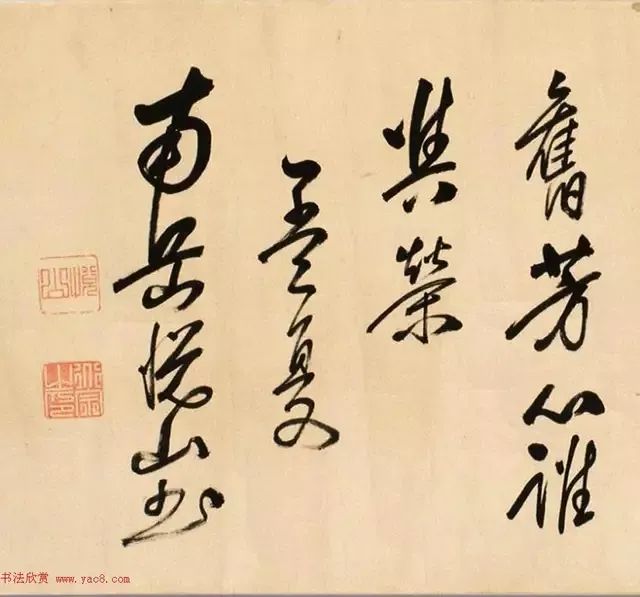 舊芳心誰
與榮
孟夏
南岳悅山書
书法欣赏 www.yac8.com